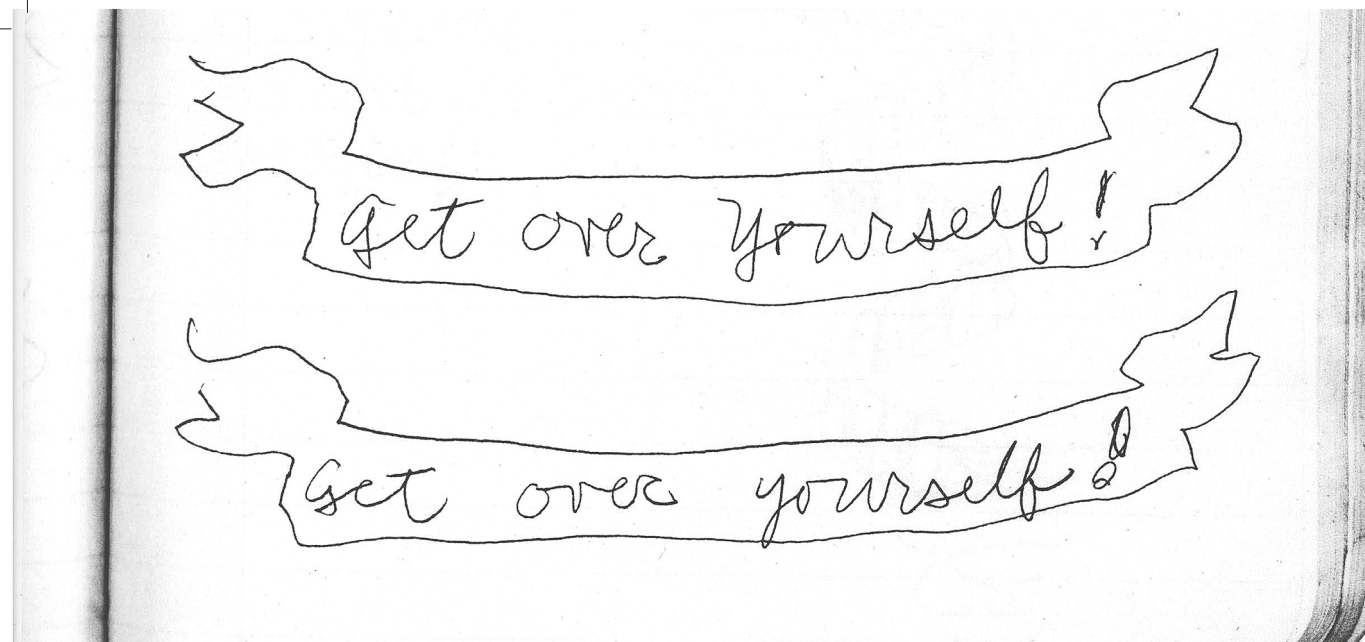 Get over Yourself!
Get over yourself!